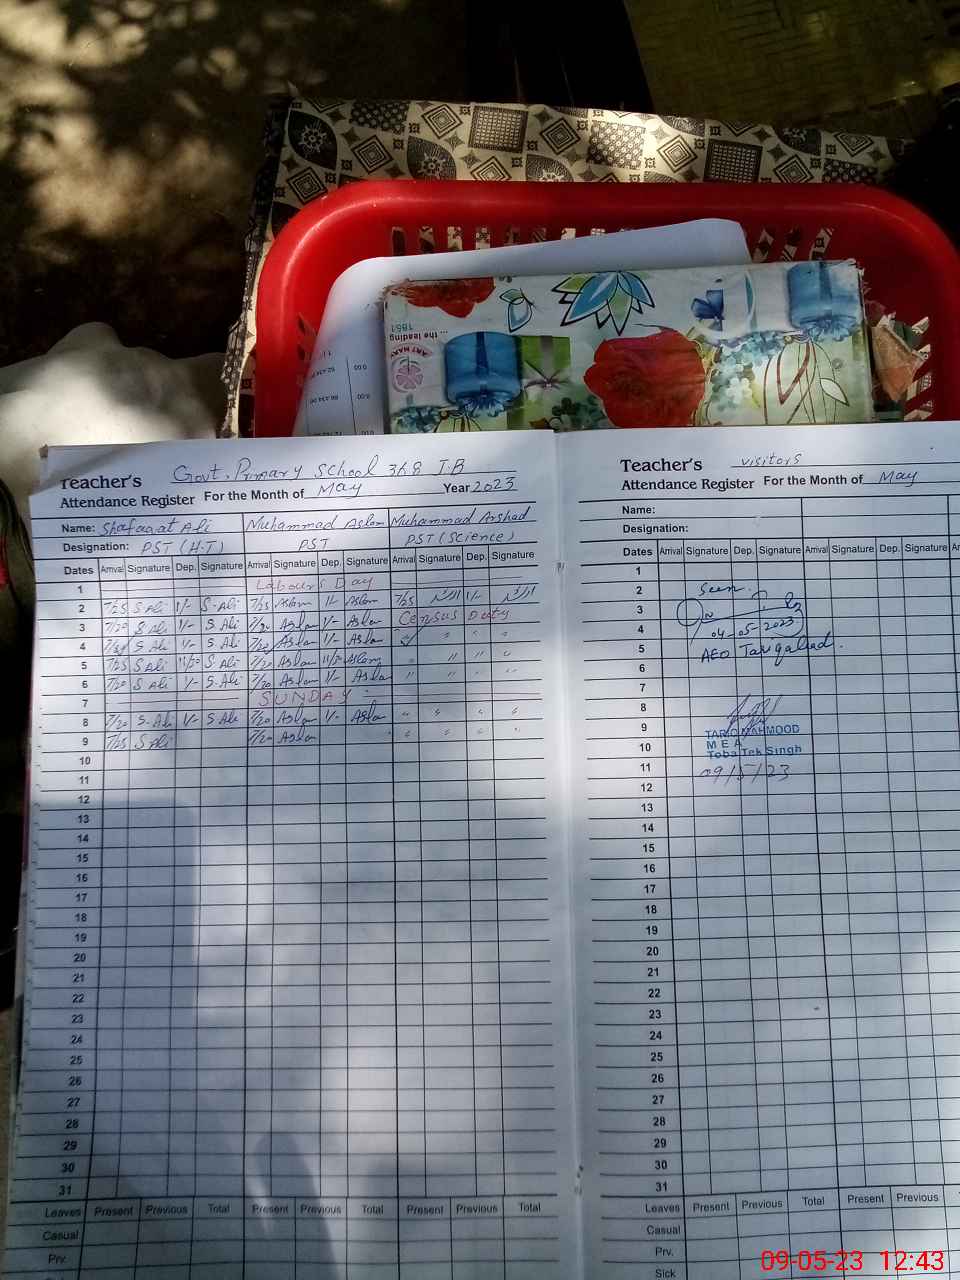 ... the leading
1851
ART MARK
0.00
82,434.00
0.00
86,434.00
0.00
Teacher's Govt. Primary School 368 J.B
Attendance Register For the Month of May Year 2023
Name: Shafaqat Ali Muhammad Aslam Muhammad Arshad
Designation: PST (H.T) PST PST (Science)
Dates Arrival Signature Dep. Signature Arrival Signature Dep. Signature Arrival Signature Dep. Signature
1 Labour's Day
2 7/25 S Ali 1/- S. Ali 7/25 Aslam 1/- Aslam 7/25 ارشد 1/- ارشد
3 7/20 S Ali 1/- S Ali 7/20 Aslam 1/- Aslam Census Duty
4 S Ali 1/- S Ali 7/20 Aslam 1/- Aslam " " "
5 7/25 S Ali 11/30 S Ali 7/20 Aslam 11/30 Aslam " " " "
6 7/20 S Ali 1/- S. Ali 7/20 Aslam 1/- Aslam " " " "
7 SUNDAY
8 7/20 S. Ali 1/- S Ali 7/20 Aslam 1/- Aslam " " " "
9 7/25 S Ali 7/20 Aslam " " " "
10
11
12
13
14
15
16
17
18
19
20
21
22
23
24
25
26
27
28
29
30
31
Leaves Present Previous Total Present Previous Total Present Previous Total
Casual
Prv.
Teacher's visitors
Attendance Register For the Month of May
Name:
Designation:
Dates Arrival Signature Dep. Signature Arrival Signature Dep. Signature
1
2 Seen.
3
4 04-05-2023
5 AEO
6
7
8
9 TARIQ MAHMOOD
10 M E A
Toba Tek Singh
11 09/5/23
12
13
14
15
16
17
18
19
20
21
22
23
24
25
26
27
28
29
30
31
Leaves Present Previous Total Present Previous
Casual
Prv.
Sick
09-05-23 12:43